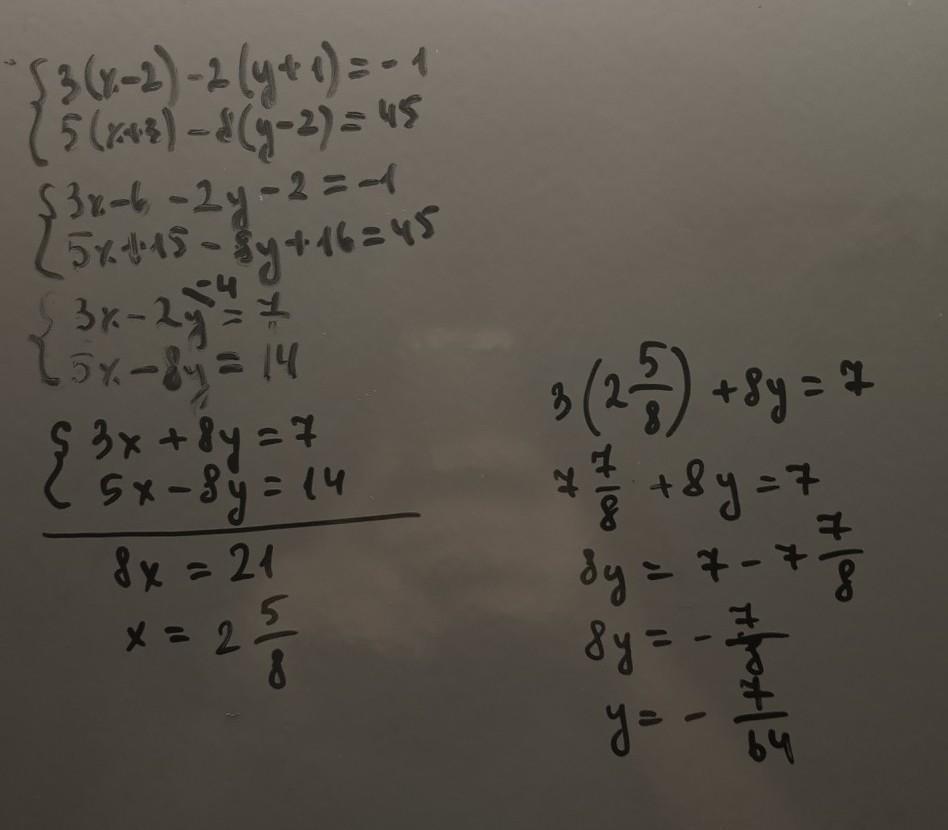 {3(x-2)-2(y+1)=-1
{5(x+3)-8(y-2)=45
{3x-6-2y-2=-1
{5x+15-8y+16=45
{3x-2y=7 \-4
{5x-8y=14
{3x+8y=7
{5x-8y=14
8x=21
x=2 5/8
3(2 5/8)+8y=7
7 7/8+8y=7
8y=7-7 7/8
8y=-7/8
y=-7/64